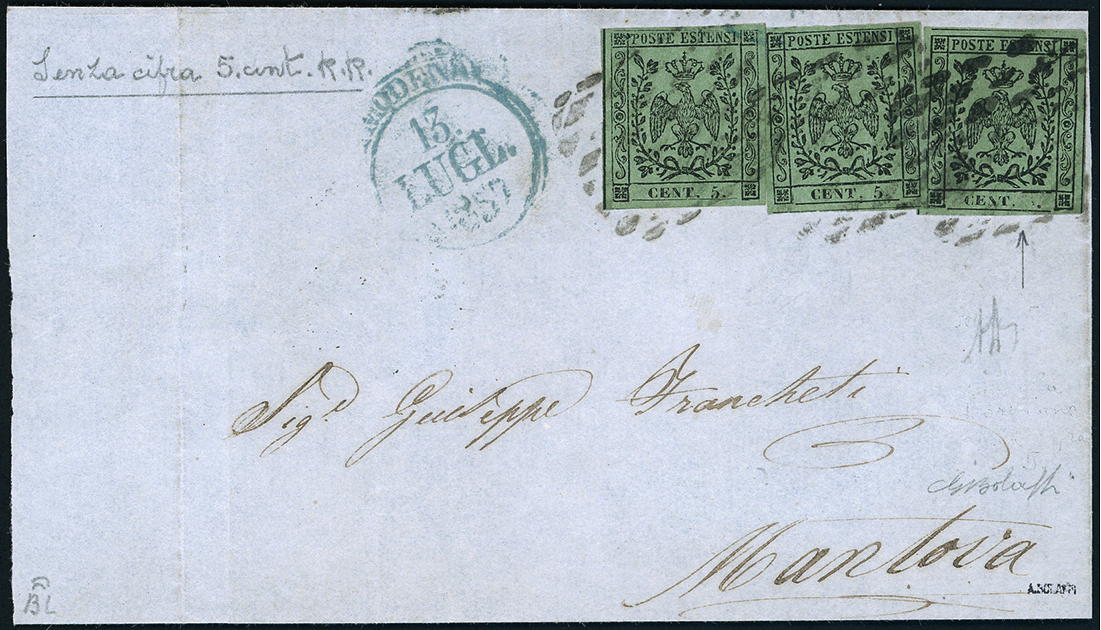 Senza cifra 5. cent. R.R.
MODENA
13.
LUGL.
1857
POSTE ESTENSI
CENT. 5.
POSTE ESTENSI
CENT. 5.
POSTE ESTENSI
CENT.
Sig.d Guiseppe Francheti
Mantova
BL
A.BOLAFFI